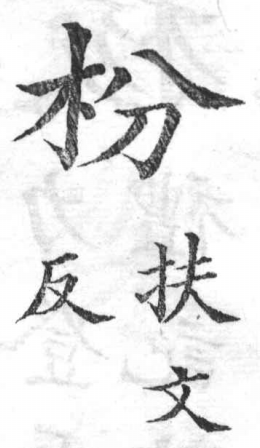 枌
扶文
反